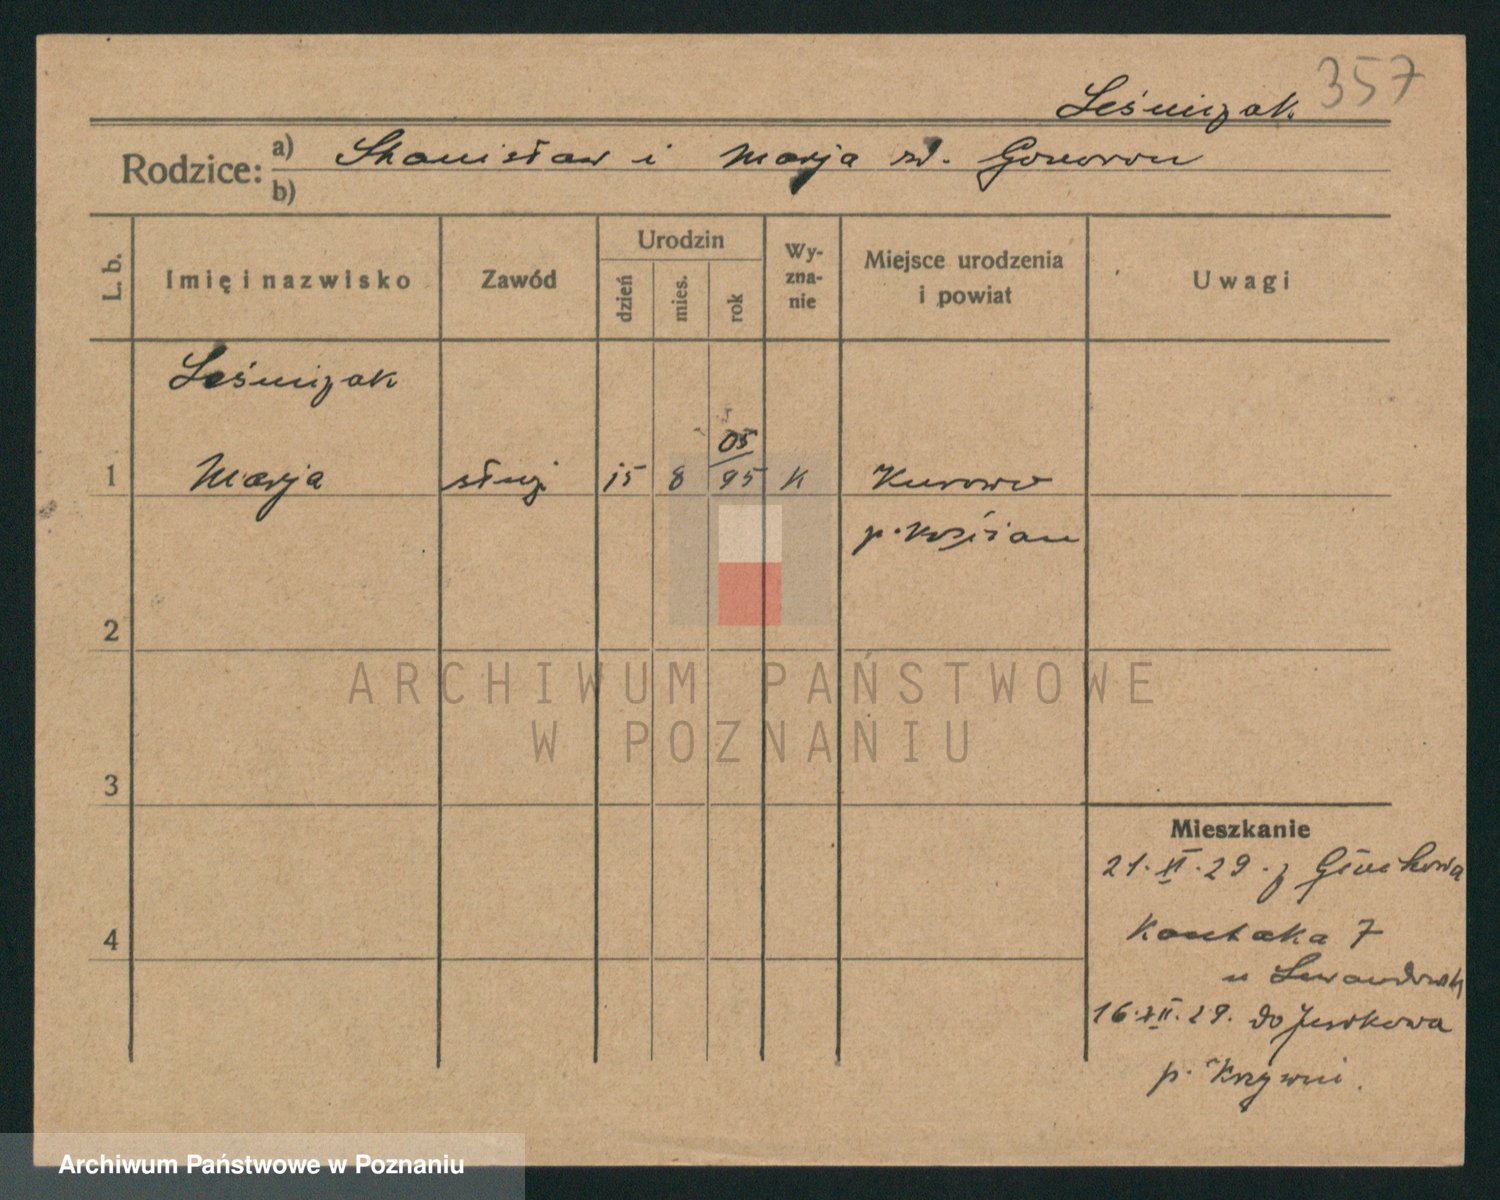 357
Leśniczak
Rodzice: a) Stanisław i Marja rd.
b)
L. b.
Imię i nazwisko
Zawód
Urodzin
dzień
mies.
rok
Wy-
zna-
nie
Miejsce urodzenia
i powiat
Uwagi
Leśniczak
05
1 Marja służ. 15 8 95 K Kurowo
p. Kościan
2
3
4
Mieszkanie
21.XI.29. z
Kantaka 7
u Lewandowsk
16.XII.29. do Jurkowa
p. Krzywiń.
ARCHIWUM PAŃSTWOWE
W POZNANIU
Archiwum Państwowe w Poznaniu